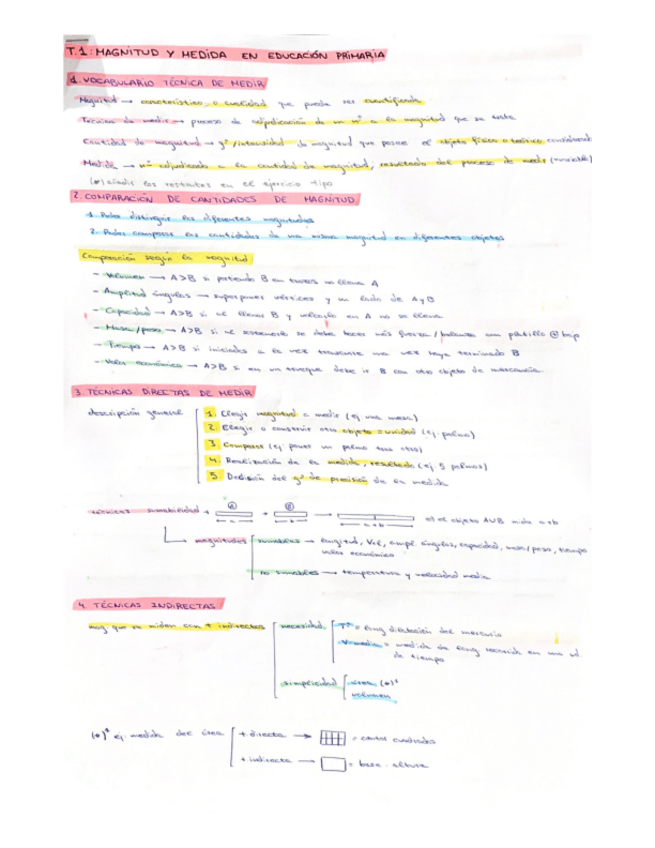 T.1: MAGNITUD Y MEDIDA EN EDUCACIÓN PRIMARIA
1. VOCABULARIO TÉCNICA DE MEDIR
Magnitud → característica o cualidad que puede ser cuantificada
Técnica de medir → proceso de adjudicación de un nº a la magnitud que se trate
Cantidad de magnitud → gº/intensidad de magnitud que posee el objeto físico o teórico considerado
Medida → nº adjudicado a la cantidad de magnitud, resultado del proceso de medir (+unidad)
(*) añadir los restantes en el ejercicio tipo
2. COMPARACIÓN DE CANTIDADES DE MAGNITUD
1. Poder distinguir las diferentes magnitudes
2. Poder comparar las cantidades de una misma magnitud en diferentes objetos
Comparación según la magnitud
- Volumen → A>B si partiendo B en trozos no llena A
- Amplitud ángulos → superponer vértices y un lado de A y B
- Capacidad → A>B si al llenar B y volcarlo en A no se llena
- Masa/peso → A>B si al sostenerlo se debe hacer más fuerza / balanza un platillo @ bajo
- Tiempo → A>B si iniciados a la vez transcurre una vez haya terminado B
- Valor económico → A>B si en un trueque debe ir B con otro objeto de mercancía.
3. TÉCNICAS DIRECTAS DE MEDIR
descripción general
1. Elegir magnitud a medir (ej una mesa)
2. Elegir o construir otro objeto = unidad (ej. palmo)
3. Comparar (ej poner un palmo tras otro)
4. Realización de la medida, resultado (ej. 5 palmos)
5. Decisión del gº de precisión de la medida
técnicas sumabilidad → A + B → el objeto AUB mide a+b
a b a+b
magnitudes
sumables → longitud, Vol, ampl. ángulos, capacidad, masa/peso, tiempo
valor económico
no sumables → temperatura y velocidad media
4. TÉCNICAS INDIRECTAS
mag que se miden con t indirectas
necesidad:
Tª = long dilatación del mercurio
V media = medida de long recorrida en una ud.
de tiempo
simplicidad
área (*)²
volumen
(*)² ej. medida del área
t. directa → = contar cuadrados
t. indirecta → = base · altura